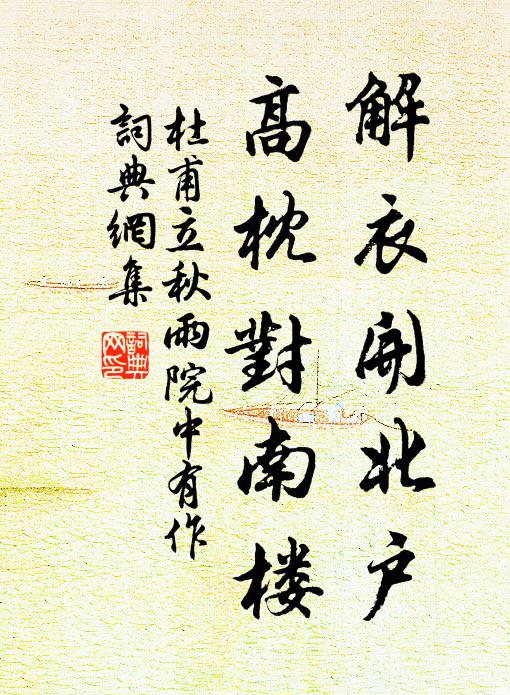 解衣開北户
高枕對南楼
杜甫立秋雨院中有作
詞典網集
詞典網印